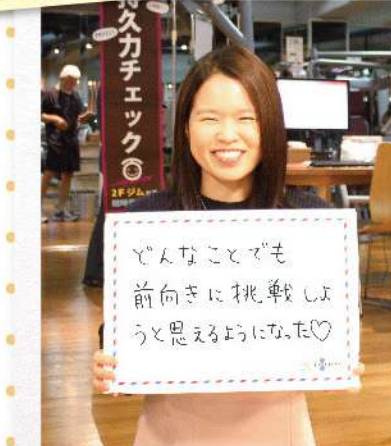 持久力チェック
2Fジム
どんなことでも
前向きに挑戦しよ
うと思えるようになった♡